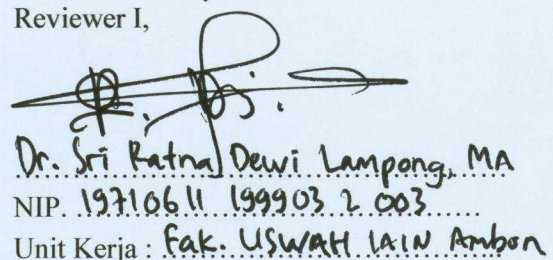 Reviewer I,
Dr. Sri Ratna Dewi Lampong, MA
NIP. 19710611 199903 2 003
Unit Kerja : Fak. USWAH IAIN Ambon